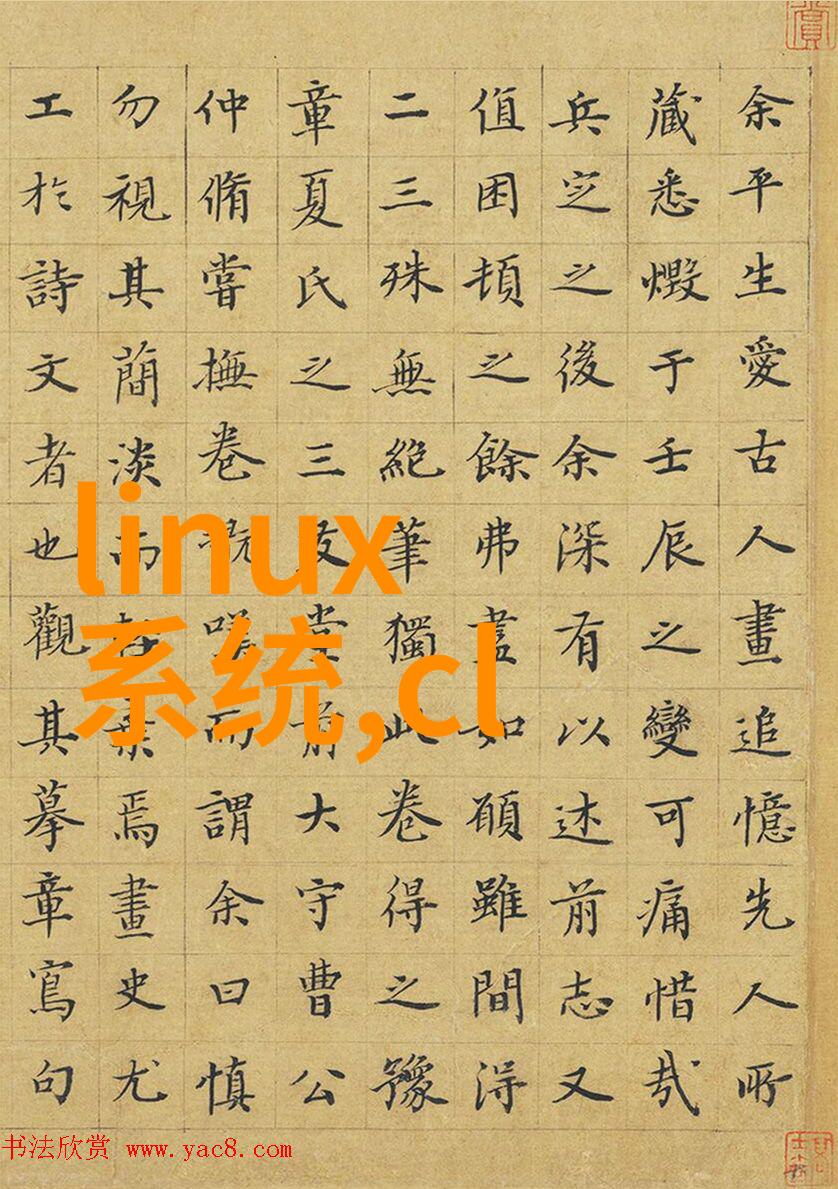 余平生愛古人畫追憶先人所
藏悉燬于壬辰之變可痛惜哉
兵定之後余深有以述前志又
值困頓之餘弗盡如願雖間得
二三殊無絕筆獨此卷得之豫
章夏氏之三友堂前大守曹公
仲脩嘗撫卷玩嘆而謂余曰慎
勿視其簡淡而棄焉畫史尤
工於詩文者也觀其摹章寫句
linux
系统,cl
书法欣赏 www.yac8.com